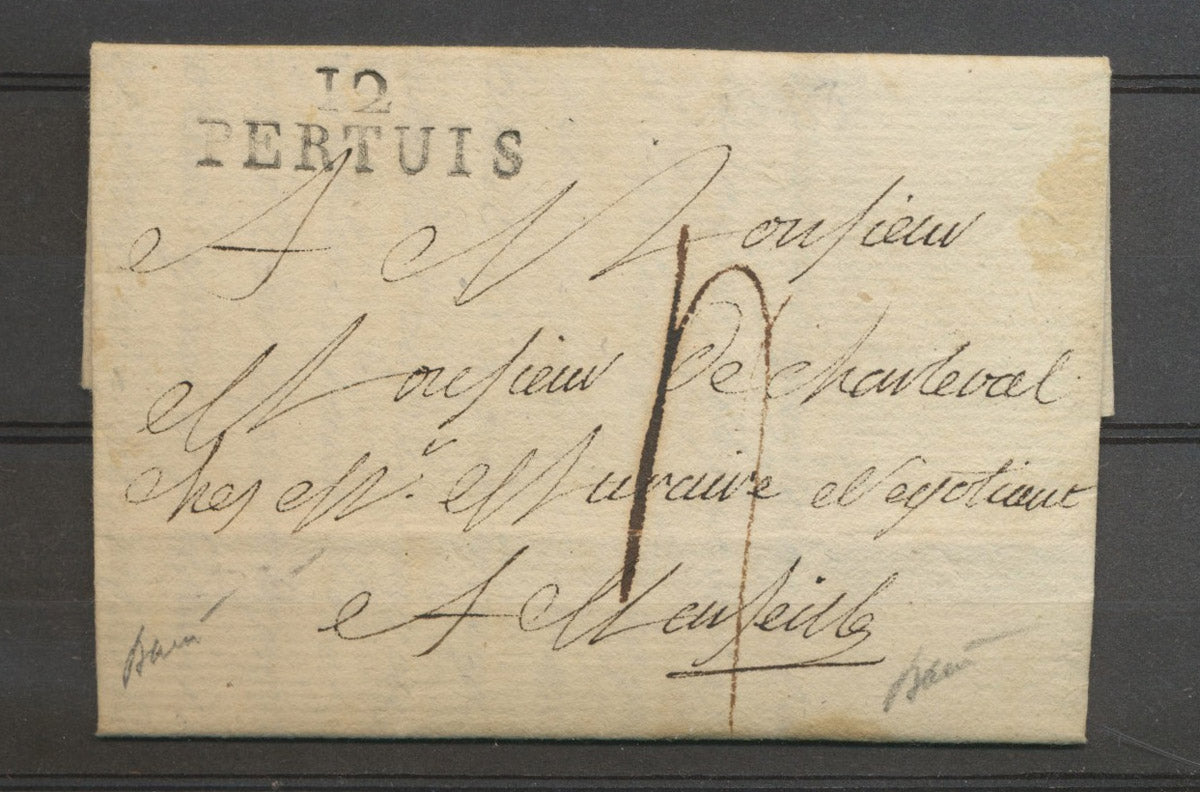 12
PERTUIS
A Monsieur
Monsieur De charleval
ches Mr. Muraire Negotiant
A Marseille